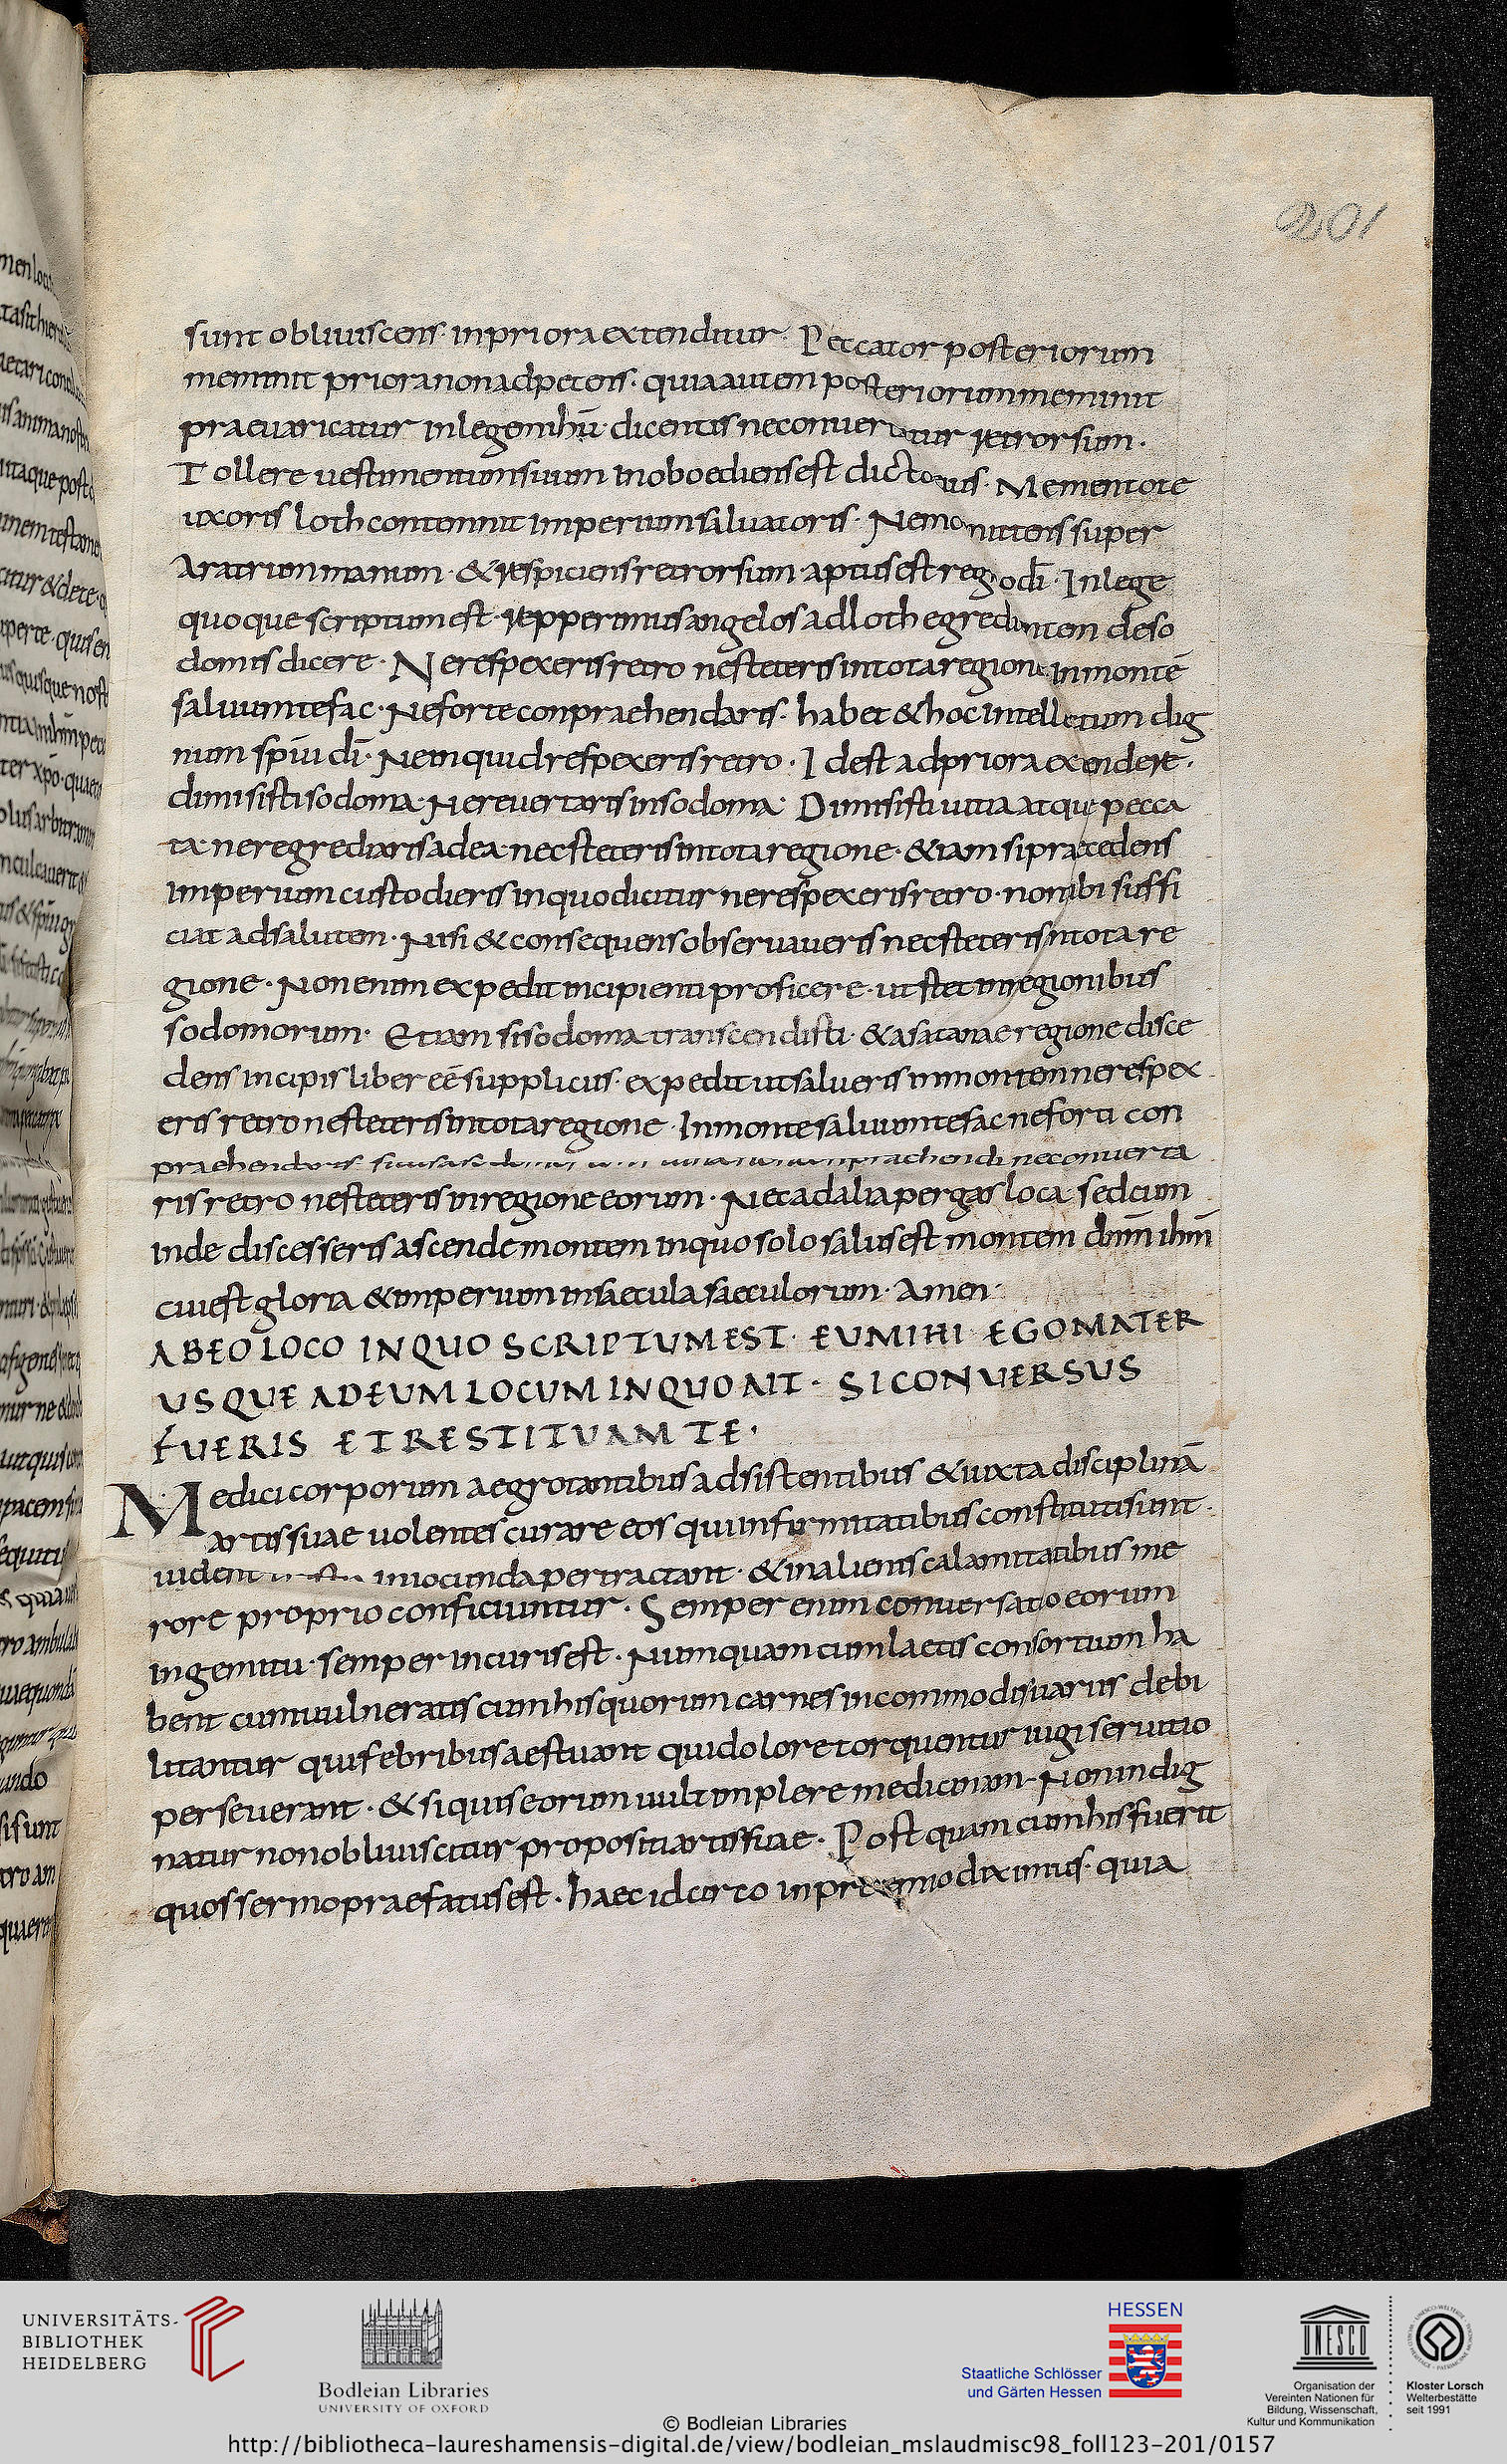 201
sunt obliuiscens· in priora extenditur· Peccator posteriorum
meminit priora non adpetens· quia autem posteriorum meminit
praeuaricatur in legem ihū· dicentis ne conuertatur retrorsum·
Tollere uestimentum suum inoboediens est dicto eius· Mementote
uxoris loth contemnit imperium saluatoris· Nemo mittens super
Aratrum manum· & respiciens retrorsum aptus est regno dī· In lege
quoque scriptum est· repperimus angelos ad loth egredientem de so
domis dicere· Ne respexeris retro ne steteris in tota regione in montē
saluum te fac· Ne forte conpraehendaris· habet & hoc intellectum dig
num spiū dī· Nem quid respexeris retro· Id est ad priora extendere·
dimisisti sodoma· Ne reuertaris in sodoma· Dimisisti uitia atque pecca
ta· ne regrediaris ad ea· nec steteris in tota regione· & iam si praecedens
imperium custodieris in quo dicitur ne respexeris retro· non tibi suffi
ciat ad salutem· Nisi & consequens obseruaueris nec steteris in tota re
gione· Non enim expedit incipienti proficere· ut stet in regionibus
sodomorum· Etiam si sodoma transcendisti· & a satanae regione disce
dens incipis liber eē suppliciis· expedit ut salueris in montem ne respex
eris retro ne steteris in tota regione· In monte saluum te fac ne forti con
praehendaris praehendi ne conuerta
ris retro ne steteris in regione eorum· Nec ad alia pergas loca sed cum
inde discesseris ascende montem in quo solo salus est montem dnm̄ ihm̄
cui est gloria & imperium in saecula saeculorum· Amen·
AB EO LOCO IN QUO SCRIPTUM EST· EU MIHI EGO MATER
USQUE AD EUM LOCUM IN QUO AIT· SI CONUERSUS
FUERIS ET RESTITUAM TE·
Medici corporum aegrotantibus adsistentibus & iuxta disciplinā
artis suae uolentes curare eos qui in firmitatibus constituti sunt·
uident iniocunda pertractant· & in alienis calamitatibus me
rore proprio conficiuntur· Semper enim conuersatio eorum
in gemitu· semper in curis est· Numquam cum laetis consortium ha
bent cum uulneratis cum his quorum carnes incommodis uariis debi
litantur qui febribus aestuant qui dolore torquentur iugi seruitio
perseuerant· & si quis eorum uult implere medicinam· Non indig
natur non obliuiscitur propositi artis suae· Post quam cum his fuerit
quos sermo praefatus est· haec idcirco in proemio diximus· quia
UNIVERSITÄTS-
BIBLIOTHEK
HEIDELBERG
Bodleian Libraries
UNIVERSITY OF OXFORD
HESSEN
Staatliche Schlösser
und Gärten Hessen
UNESCO
Organisation der
Vereinten Nationen für
Bildung, Wissenschaft,
Kultur und Kommunikation
Kloster Lorsch
Welterbestätte
seit 1991
© Bodleian Libraries
http://bibliotheca-laureshamensis-digital.de/view/bodleian_mslaudmisc98_foll123-201/0157